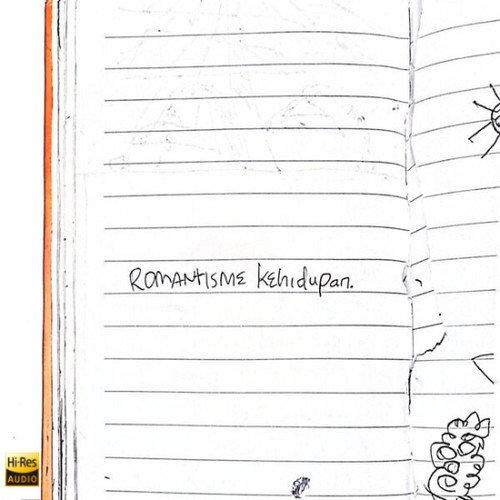 ROMANTISME kehidupan.
Hi-Res
AUDIO